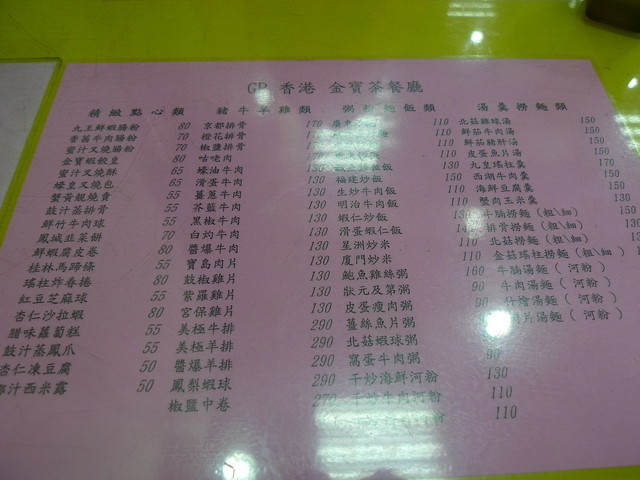 GD 香港 金寶茶餐廳
精緻點心類 豬牛羊雞類 粥粉麵飯類 湯羹撈麵類
九王鮮蝦腸粉 80 京都排骨 170 110 北菇雞球湯 150
香茜牛肉腸粉 70 橙花排骨 110 鮮茄牛肉湯 150
蜜汁叉燒腸粉 70 椒鹽排骨 110 鮮茄豬肝湯 150
金寶蝦餃皇 80 咕咾肉 110 皮蛋魚片湯 150
蜜汁叉燒酥 65 蠔油牛肉 130 九皇瑤柱羹 170
蠔皇叉燒包 65 滑蛋牛肉 130 福建炒飯 110 西湖牛肉羹 150
蟹黃靚燒賣 55 薑蔥牛肉 130 生炒牛肉飯 110 海鮮豆腐羹 150
鼓汁蒸排骨 55 芥籃牛肉 130 明治牛肉飯 110 蟹肉玉米羹 150
鮮竹牛肉球 55 黑椒牛肉 130 蝦仁炒飯 130 牛腩撈麵(粗\細)
鳳城韭菜餅 70 白灼牛肉 130 滑蛋蝦仁飯 排骨撈麵(粗\細)
鮮蝦腐皮卷 80 醬爆牛肉 130 星洲炒米 110 北菇撈麵(粗\細)
桂林馬蹄條 55 寶島肉片 130 廈門炒米 110 金菇瑤柱撈麵(粗\細)
瑤柱炸春捲 60 鼓椒雞片 130 鮑魚雞絲粥 160 牛腩湯麵(河粉)
紅豆芝麻球 55 紫蘿雞片 130 狀元及第粥 90 牛肉湯麵(河粉)
杏仁沙拉蝦 80 宮保雞片 130 皮蛋瘦肉粥 90 湯麵(河粉)
腊味蘿蔔糕 55 美極牛排 290 薑絲魚片粥 片湯麵(河粉)
鼓汁蒸鳳爪 55 美極羊排 290 北菇蝦球粥
杏仁凍豆腐 50 醬爆羊排 290 窩蛋牛肉粥 90
椰汁西米露 50 鳳梨蝦球 290 干炒海鮮河粉 130
椒鹽中卷 270 干炒牛肉河粉 110
110